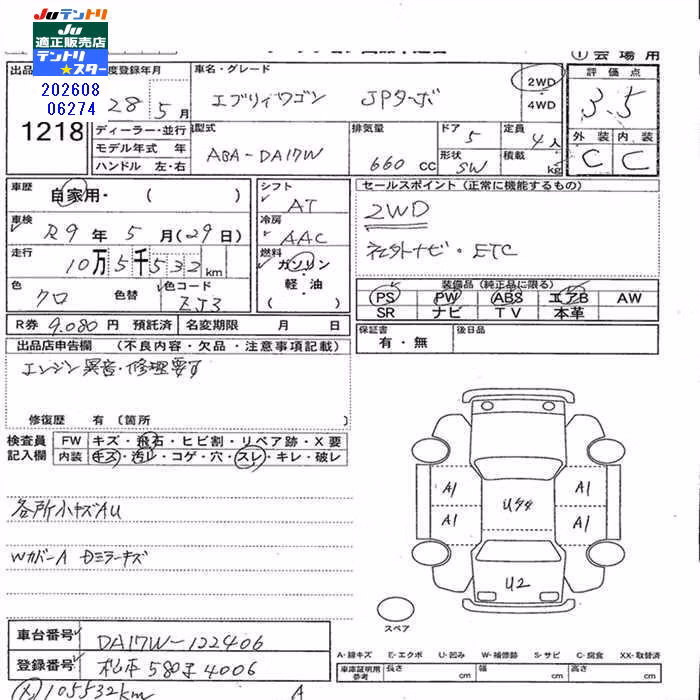 JUテントリ
JU テントリ
JU
適正販売店
テントリ
スター
202608
06274
会場用
出品
1218
度登録年月
28年5月
車名・グレード
エブリィワゴン JPターボ
2WD
4WD
評価点
3.5
外装 内装
C C
ディーラー・並行
モデル年式 年
ハンドル 左・右
型式
ABA-DA17W
排気量
660cc
ドア
5
形状
SW
定員
4人
積載
kg
車歴
自家用・( )
車検
R9年5月(29日)
走行
10万5千532km
色
クロ
色替
色コード
ZJ3
シフト
AT
冷房
AAC
燃料
ガソリン
軽・油
( )
R券 9.080円 預託済 名変期限 月 日
セールスポイント(正常に機能するもの)
2WD
社外ナビ・ETC
装備品(純正品に限る)
PS PW ABS エアB AW
SR ナビ TV 本革
保証書
有・無
後日品
出品店申告欄 (不良内容・欠品・注意事項記載)
エンジン異音・修理要す
修復歴 有(箇所
検査員
記入欄
FW キズ・飛石・ヒビ割・リペア跡・X要
内装 キズ・汚レ・コゲ・穴・スレ・キレ・破レ
各所小キズAU
WカバーA Dミラーキズ
A1 A1
A1 A1
U2
スペア
車台番号
DA17W-122406
登録番号
松本580 4006
105532km
A
A-線キズ E-エクボ U-凹み W-補修跡 S-サビ C-腐食 XX-取替済
車庫証明用
参考
長さ cm 幅 cm 高さ cm